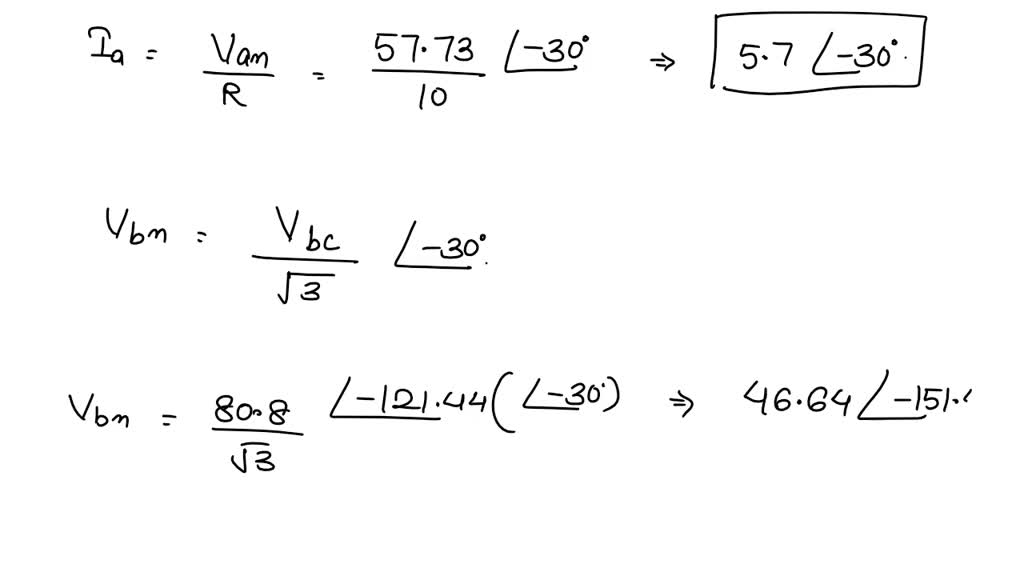 Ia = Van/R = 57.73/10 ∠-30° ⇒ 5.7 ∠-30°.
Vbn = Vbc/√3 ∠-30°.
Vbn = 80.8/√3 ∠-121.44 (∠-30°) ⇒ 46.64 ∠-151.